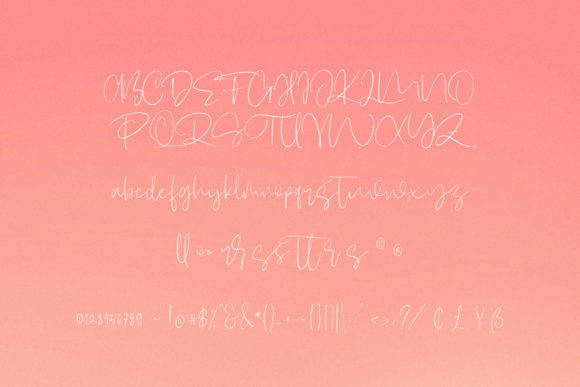 ABCDEFGHIJKLMNO
PQRSTUVWXYZ
abcdefghijklmnopqrstuvwxyz
0123456789 ~ ! @ # $ % ^ & * ( ) _ + - = { } [ ] | \ : ; " ' < > , . ? / ¢ £ ¥ ß